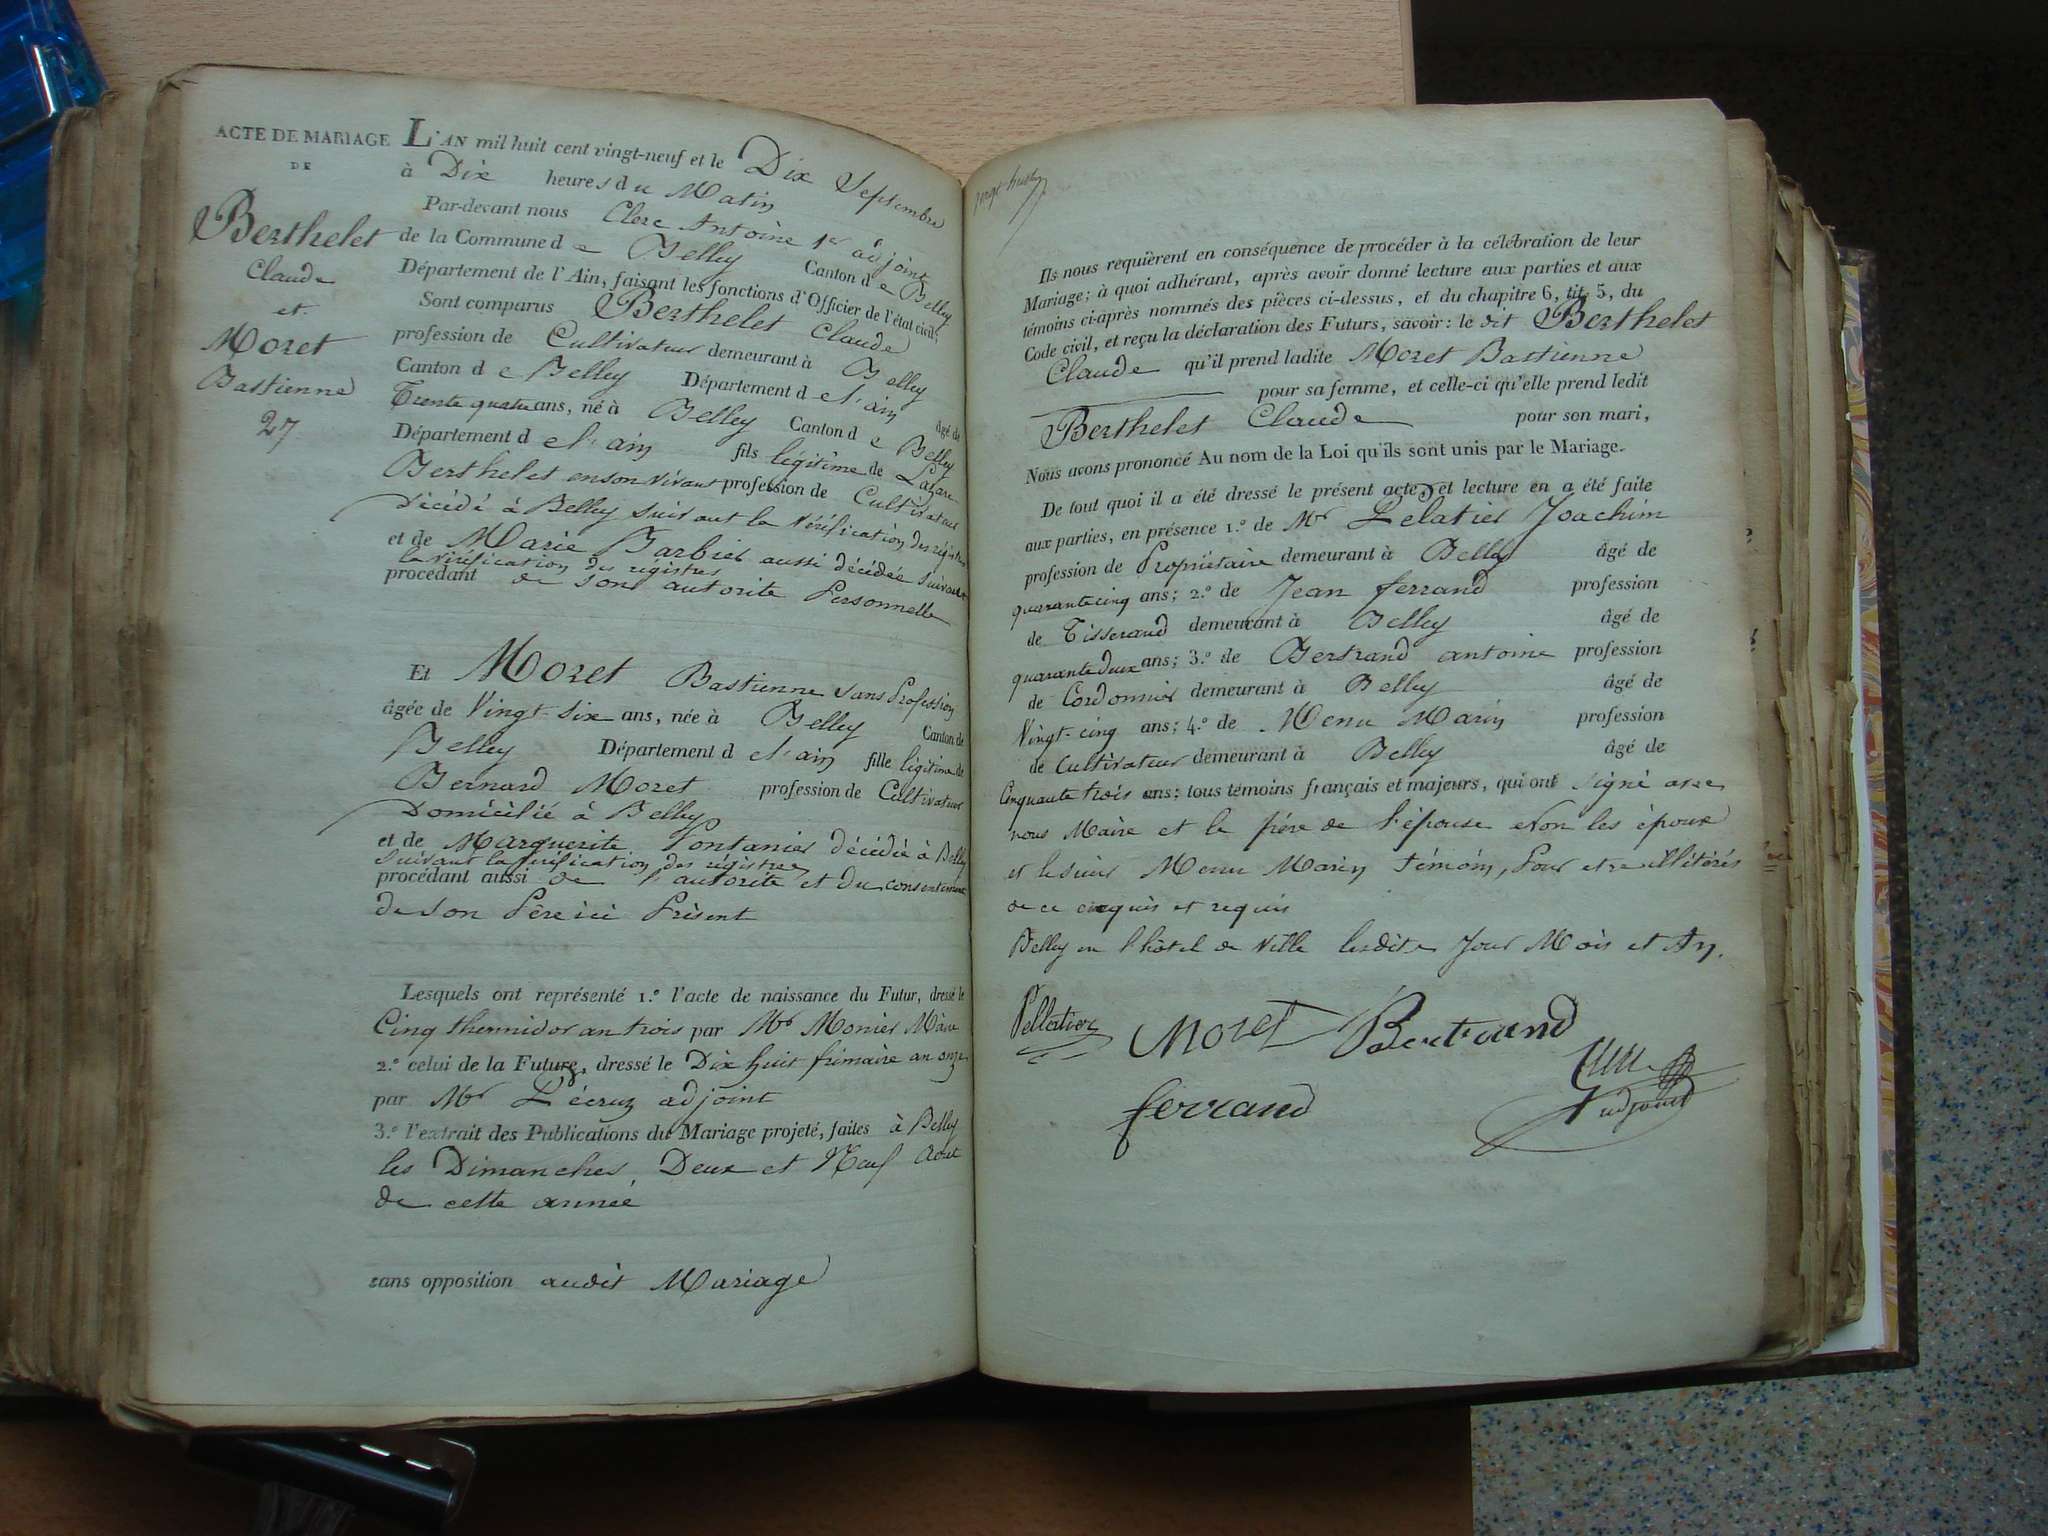 ACTE DE MARIAGE
DE
Berthelet
Claude
et
Moret
Bastienne
27
L'AN mil huit cent vingt-neuf et le Dix Septembre
à Dix heures du Matin
Par-devant nous Clerc Antoine 1er adjoint
de la Commune de Belley Canton de Belley
Département de l'Ain, faisant les fonctions d'Officier de l'état civil;
Sont comparus Berthelet Claude
profession de Cultivateur demeurant à Belley
Canton de Belley Département de l'ain âgé de
Trente quatre ans, né à Belley Canton de Belley
Département de l'ain fils légitime de Lazare
Berthelet en son vivant profession de Cultivateur
Décédé à Belley suivant la vérification des régistres
et de Marie Barbier aussi décédée suivant
la vérification des régistres
procédant de son autorité Personnelle
Et Moret Bastienne sans Profession
âgée de Vingt-six ans, née à Belley Canton de
Belley Département de l'ain fille légitime de
Bernard Moret profession de Cultivateur
Domicilié à Belley
et de Marguerite Pontanier décédée à Belley
suivant la vérification des régistres
procédant aussi de l'autorité et du consentement
de son Père ici Présent
Lesquels ont représenté 1.º l'acte de naissance du Futur, dressé le
Cinq thermidor an trois par Mr Monier Maire
2.º celui de la Future, dressé le Dix huit frimaire an onze
par Mr Lécruz adjoint
3.º l'extrait des Publications du Mariage projeté, faites à Belley
les Dimanches Deux et Neuf Aout
de cette année
sans opposition audit Mariage
vingt huit
Ils nous requièrent en conséquence de procéder à la célébration de leur
Mariage; à quoi adhérant, après avoir donné lecture aux parties et aux
témoins ci-après nommés des pièces ci-dessus, et du chapitre 6, tit. 5, du
Code civil, et reçu la déclaration des Futurs, savoir: le dit Berthelet
Claude qu'il prend ladite Moret Bastienne
pour sa femme, et celle-ci qu'elle prend ledit
Berthelet Claude pour son mari,
Nous avons prononcé Au nom de la Loi qu'ils sont unis par le Mariage.
De tout quoi il a été dressé le présent acte, et lecture en a été faite
aux parties, en présence 1.º de Mr Pelatier Joachim
profession de Propriétaire demeurant à Belley âgé de
quarante cinq ans; 2.º de Jean ferrand profession
de Tisserand demeurant à Belley âgé de
quarante deux ans; 3.º de Bertrand antoine profession
de Cordonnier demeurant à Belley âgé de
Vingt-cinq ans; 4.º de Menu Marin profession
de Cultivateur demeurant à Belley âgé de
Cinquante trois ans; tous témoins français et majeurs, qui ont signé avec
nous Maire et le père de l'épouse et non les époux
et le sieur Menu Marin témoin, Pour etre illitérés
de ce enquis et requis
Belley en l'hôtel de Ville lesdits Jour Mois et An.
Pellatier
Moret
Bertrand
ferrand
adjoint